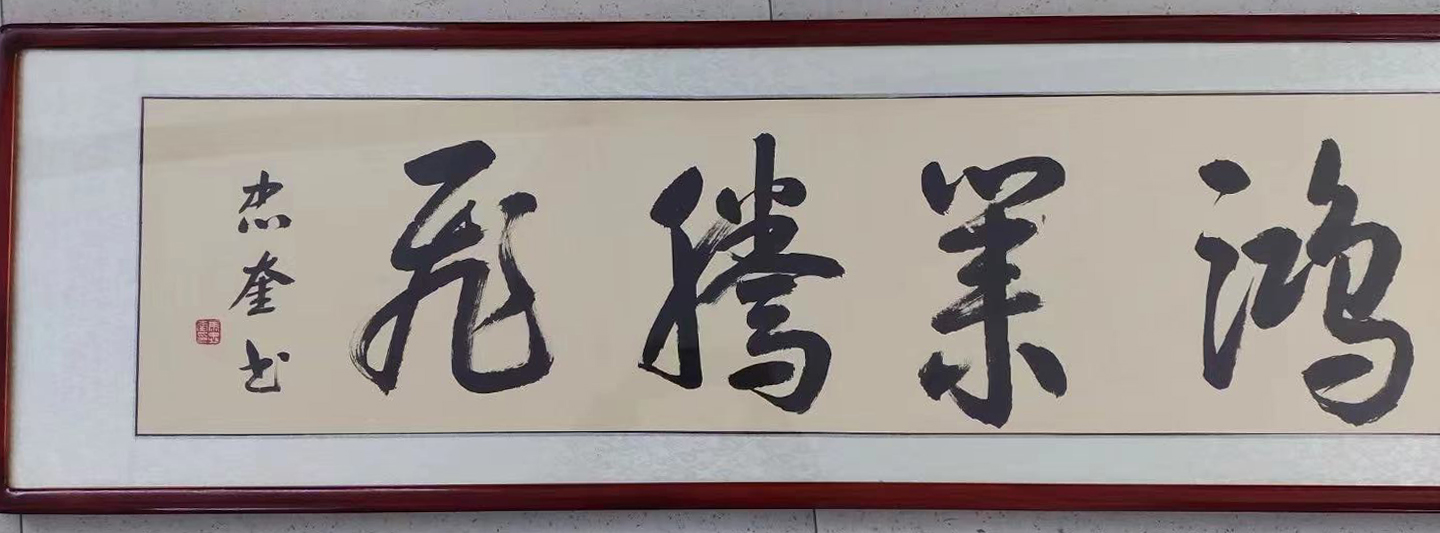 鴻業騰飛
忠奎书